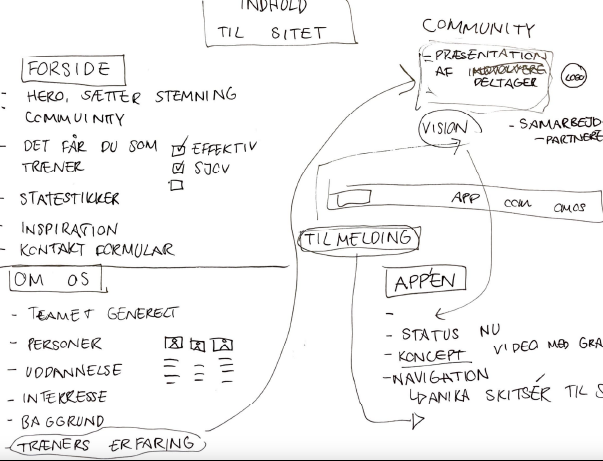 INDHOLD
TIL SITET
FORSIDE
- HERO, SÆTTER STEMNING
COMMUINTY
- DET FÅR DU SOM
TRÆNER
EFFEKTIV
SJOV
- STATESTIKKER
- INSPIRATION
- KONTAKT FORMULAR
OM OS
- TEAMET GENERELT
- PERSONER
- UDDANNELSE
- INTERESSE
- BAGGRUND
- TRÆNERS ERFARING
COMMUNITY
- PRÆSENTATION
AF
DELTAGER
LOGO
VISION
- SAMARBEJD
- PARTNERE
APP COM OMOS
TILMELDING
APPEN
-
- STATUS NU
- KONCEPT VIDEO MED GRA
- NAVIGATION
↳ ANIKA SKITSÉR TIL S